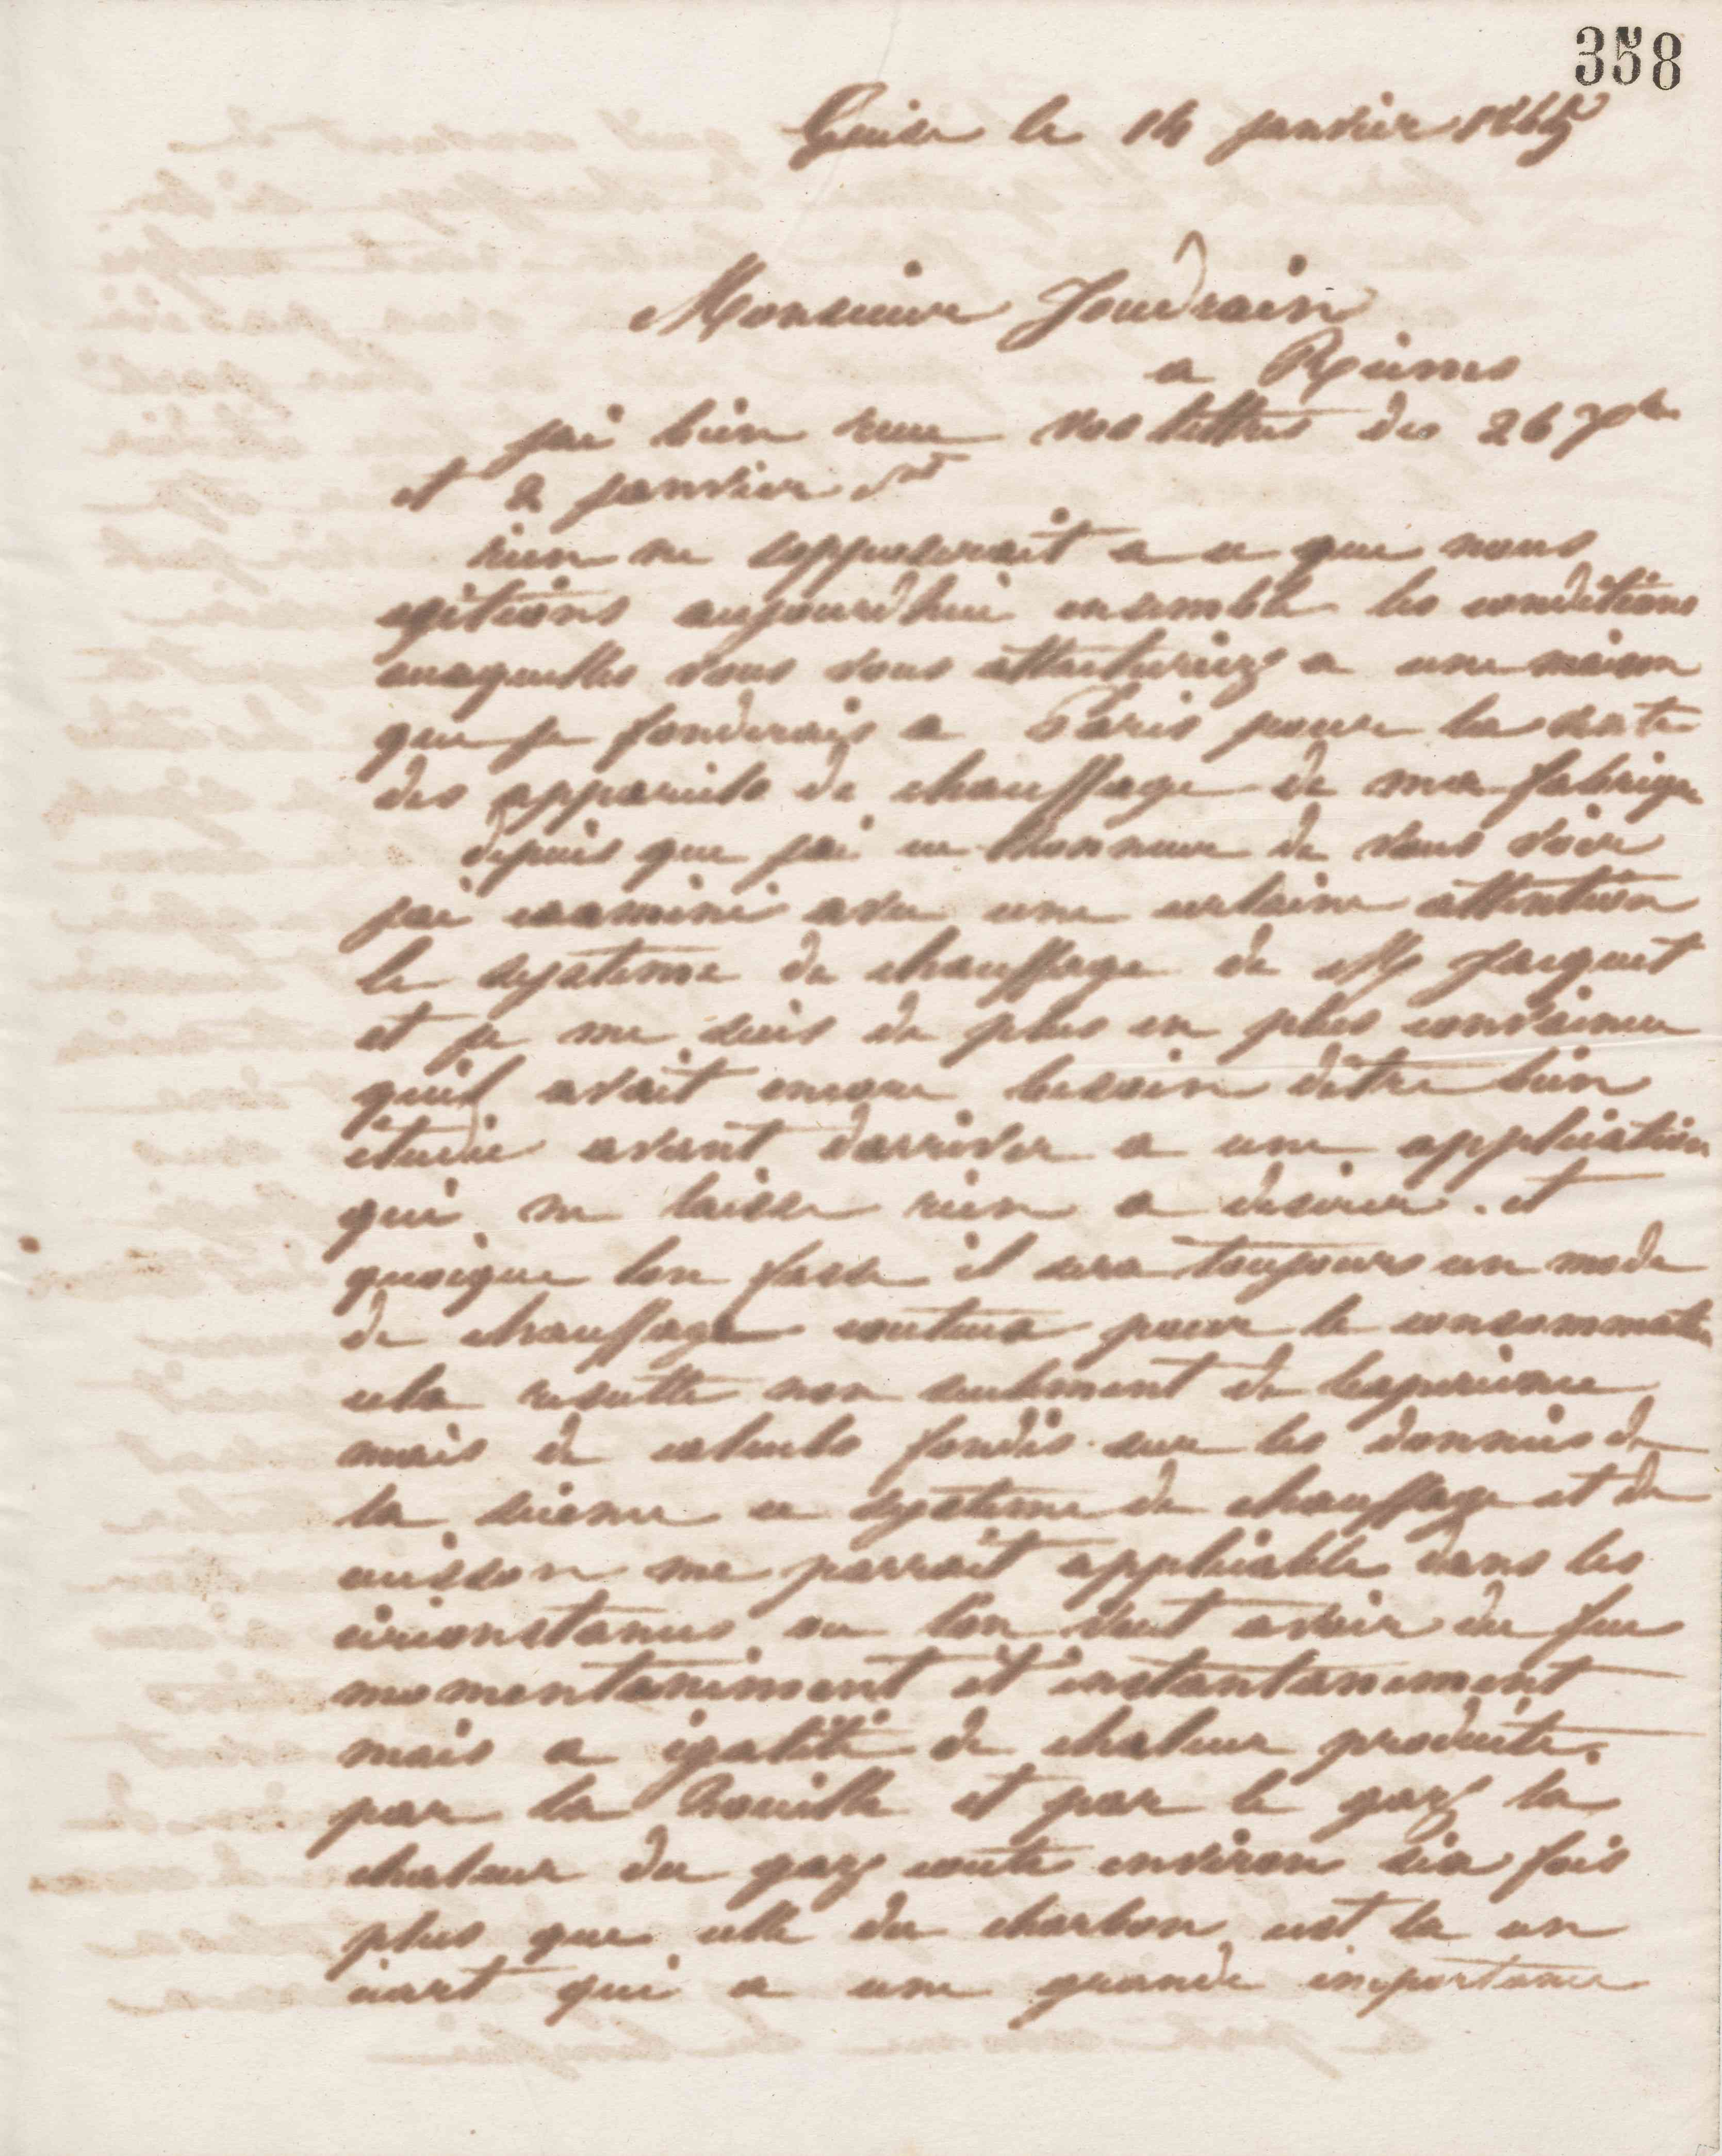 358
Guise le 14 janvier 1865
Monsieur Joudrain
a Reims
jai bien recu vos lettres des 26 
et 2 janvier ct
rien ne sopposerait a ce que nous
agitions aujourdhui ensemble les conditions
auxquelles vous vous attacheriez a une maison
que je fonderais a Paris pour la vente
des appareils de chauffage de ma fabrique
depuis que jai eu lhonneur de vous voir
jai examiné avec une certaine attention
le systeme de chauffage de M Jacquet
et je me suis de plus en plus convaincu
quil avait encore besoin dêtre bien
etudié avant darriver a une application
qui ne laisse rien a desirer. et
quoique lon fasse il sera toujours un mode
de chauffage couteux pour le consommateur
cela resulte non seulement de lexperience
mais de calculs fondés sur les données de
la science ce systeme de chauffage et de
cuisson me parrait applicable dans les
circonstances ou lon veut avoir du feu
momentanément et instantanement
mais a égalité de chaleur produite
par la houille et par le gaz la
chaleur du gaz coute environ six fois
plus que celle du charbon cest la un
écart qui a une grande importance